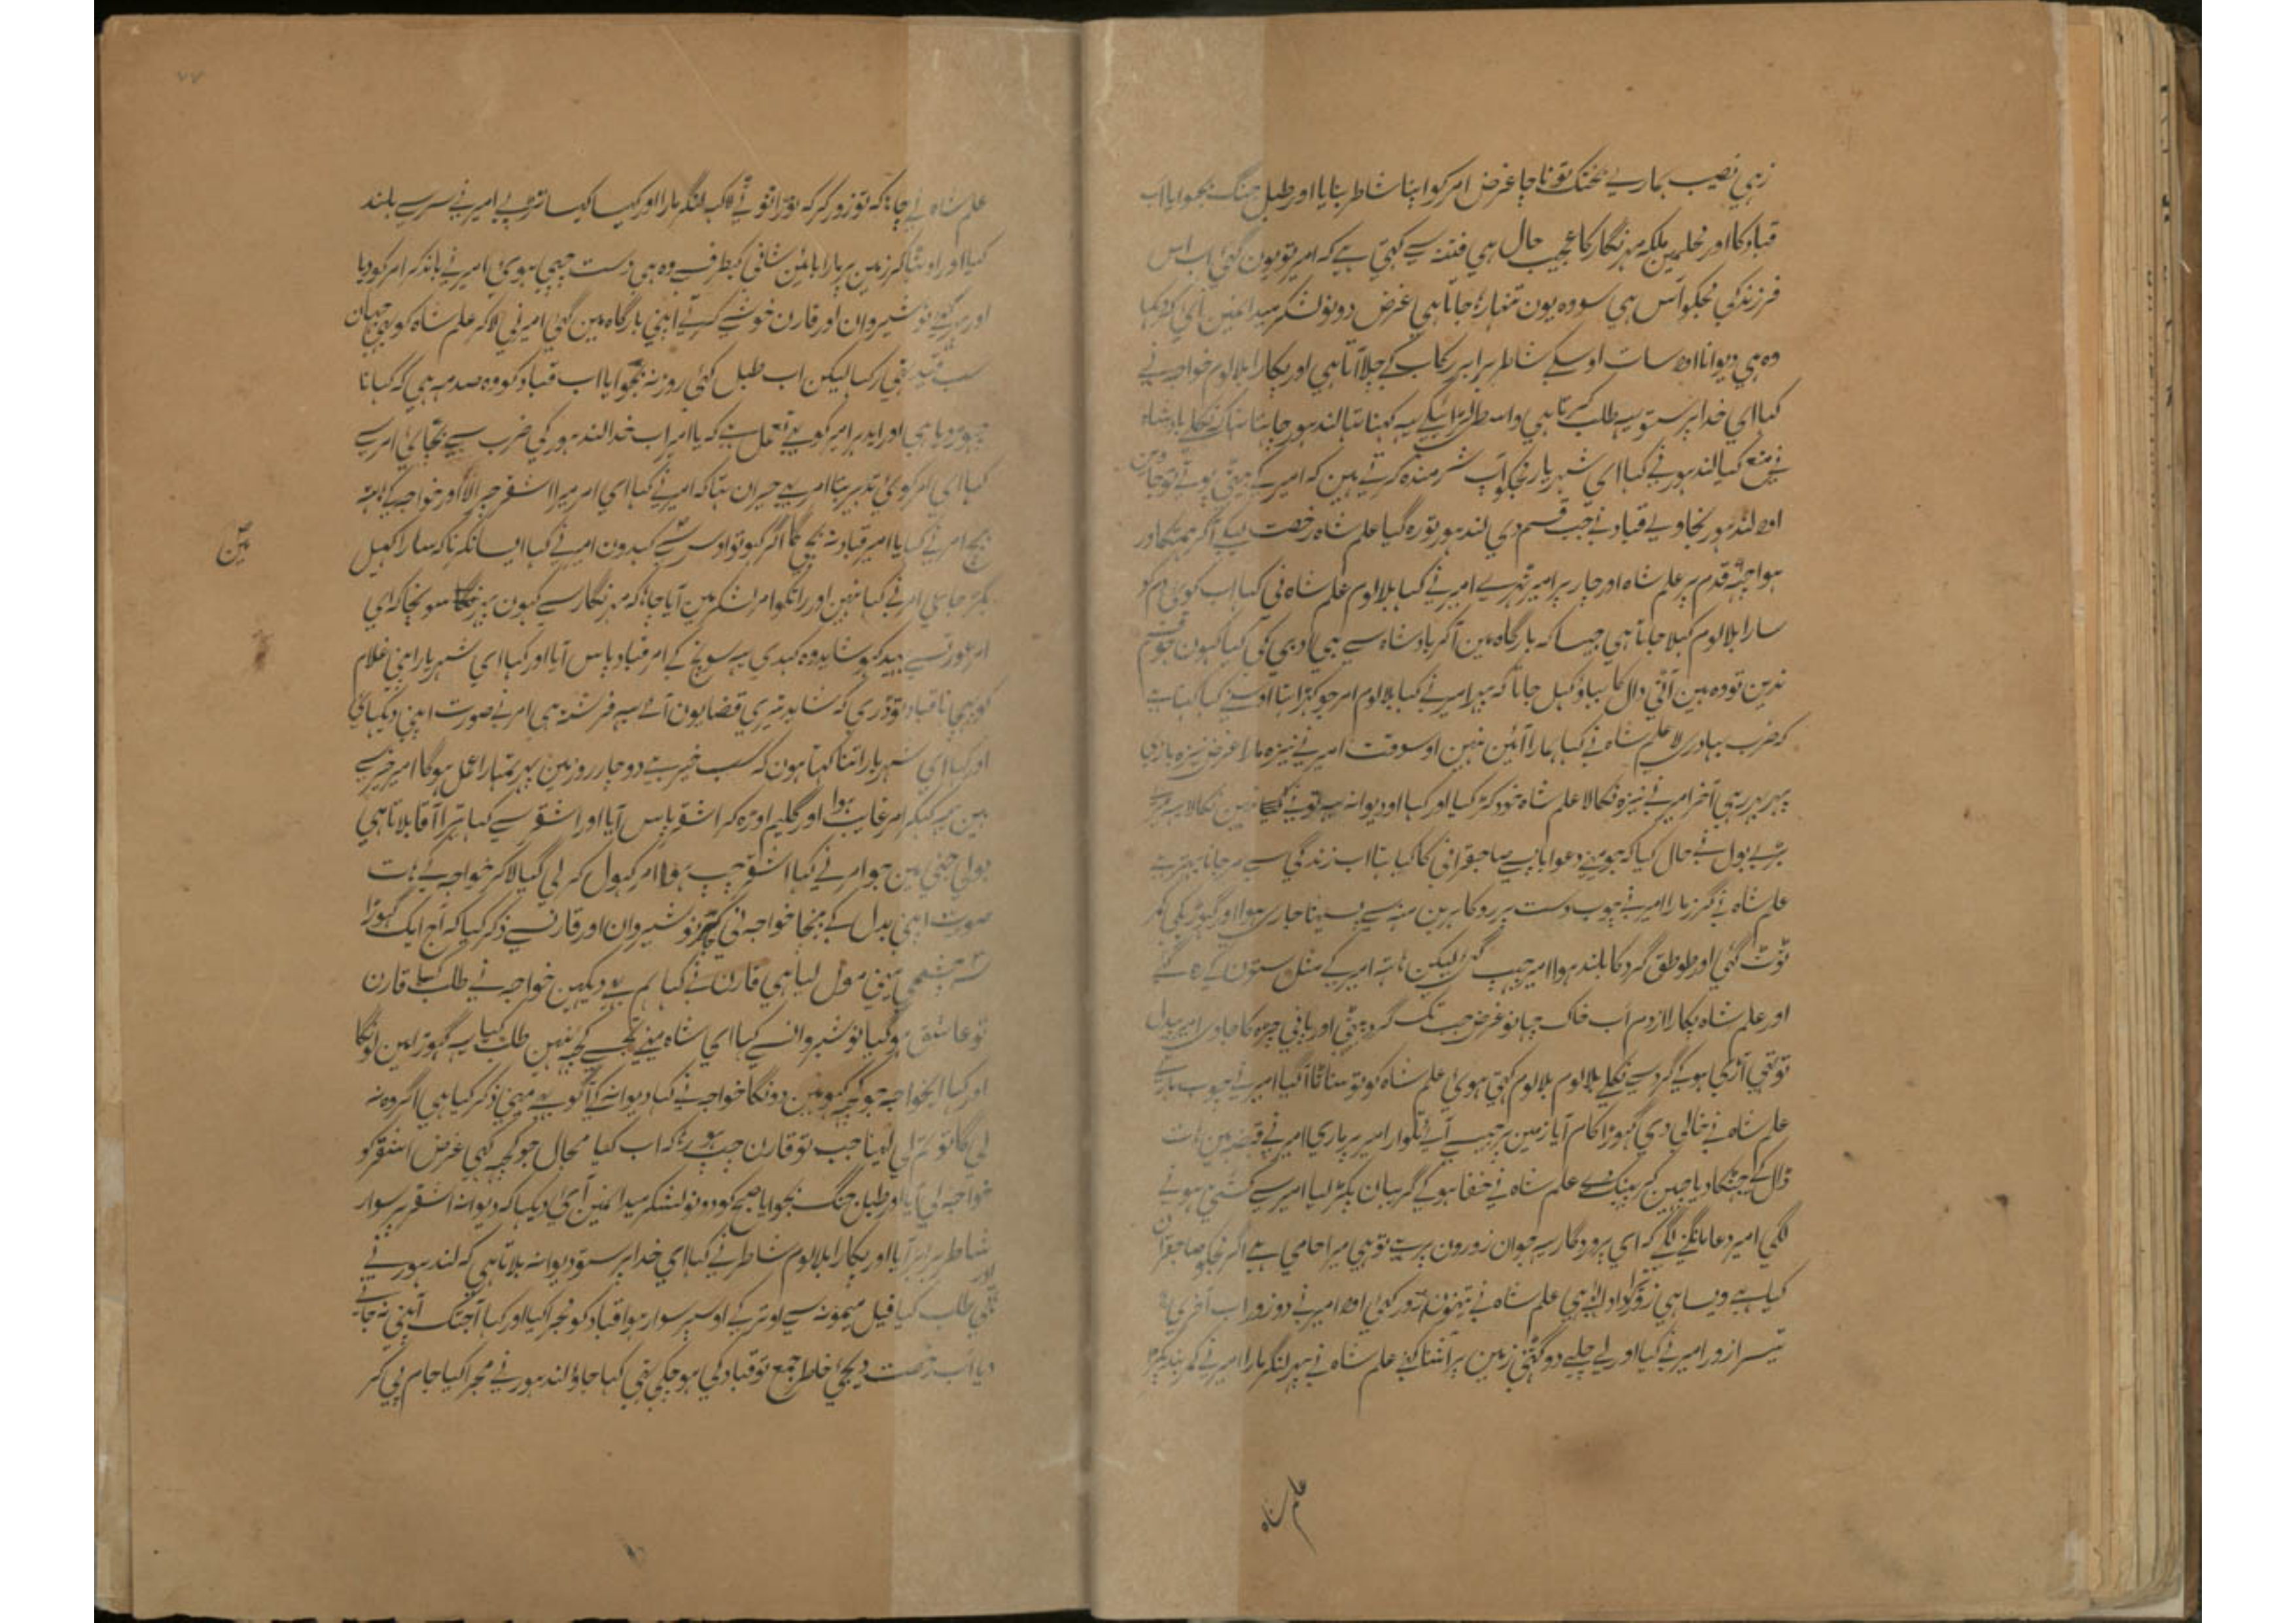 زہی نصیب ہماری بختک تو ناچا غرض امر کو اپنا شاطر بنایا اور طبل جنگ بجوایا اب
قباد کا اور محلمین ملکہ مہر نگار کا عجیب حال ہی فتنہ سے کہتی ہے کہ امیر تو یون گئی اب اس
فرزند کی مجکو آس ہی سو وہ یون تنہا رہا جاتا ہی غرض دونو لشکر میدانمین آئی
وہ ہی دیوانا اور سات اوسکے شاطر برابر رکاب کے چلا آتا ہی اور پکارا بلالوم خواجہ نے
کہا ای خدا پرستو یہ طلب کرتا ہی واسطی لڑائیکے یہ کہنا تہا لندہور چاہتا تہا کہ نکلے بادشاہ
نے منع کیا لندہور نے کہا ای شہریار مجکو آپ شرمندہ کرتے ہین کہ امیر کے
اور لندہور نجاوے قباد نے جب قسم دی لندہور تو رہ گیا علم شاہ رخصت لیکے آکر
ہوا قدم پر علم شاہ اور چار پر امیر ٹہرے امیر نے کہا بلالوم علم شاہ نی کہا اب کوئی دم کو
سارا بلالوم کہلا جاتا ہی جیسا کہ بارگاہ مین آکر بادشاہ سے بی ادبی کی کیا کیون
ندین تو وہ مین آٹی دال کا بہاؤ کہل جاتا کہ پہر امیر نے کہا بلالوم امر جو کہڑا تہا اوسنے کہا کہتا ہے
کہ ضرب بہادری لا علم شاہ نے کہا ہمارا آئین نہین اوسوقت امیر نے نیزہ مارا غرض نیزہ بازی
پہر ہی آخر امیر نے نیزہ نکالا علم شاہ خود کہڑ گیا اور کہا او دیوانہ یہ تونے نہین نکالا یہ میرے
بڑے بول نے حال کیا کہ جو مینے دعوا باپسے صاحبقرانی کا کیا تہا اب زندگی سے مر جانا بہتر ہے
علم شاہ نے گرز مارا امیر نے چوب دست پر روکا ہر بن منہ سے پسینا جاری ہوا اور گہوڑیکی کمر
ٹوٹ گئی اور طوطق گرد کا بلند ہوا امیر چہپ گئی لیکن ہاتہ امیر کے مثل ستون کے رہ گئے
اور علم شاہ پکارا ازدم آب خاک غرض جب تک گرد پہٹی اور پانی چہڑکا جاوی امیر پیدل
تو تہی آڑی ہو کے گرد سے نکلے بلالوم بلالوم کہتی ہوئ علم شاہ کو تو سناٹا آگیا امیر نے چوب ماری
علم شاہ نے خالی دی گہوڑا کام آیا زمین پر تلوار امیر پر ماری امیر نے قبضہ مین ہات
ڈال کے جہٹکا دیا چہین کر پہینک دی علم شاہ نے خفا ہو کے گریبان پکڑ لیا امیر سے کشتی ہونے
لگی امیر دعا مانگنے لگے کہ ای پروردگار یہ جوان زورون پر ہے تو ہی میرا حامی ہے اگر مجکو صاحبقران
کیا ہے ویسا ہی زور کو علم شاہ نے تینون زور کئی اور امیر نے دو زور اب آخری
تیسرا زور امیر نے کیا اور لے چلے دو گٹنی زمین پر آشنا کئے علم شاہ نے پہر لنگر مارا امیر نے کمر بند پکڑ
علم شاہ
علم شاہ نے چاہا کہ تو زور کر کہ توڑا تو نے لاکہہ لنگر مارا اور کیسا کیسا تڑپے امیر نے سر سے بلند
کیا اور اوٹہا کر زمین پر مارا وہ ہی دست چپی ہوئی امیر نے باندکر امر کو دیا
اور نوشیروان اور قارن خوشی کرتے اپنی بارگاہ مین گئی امیر نی لاکر علم شاہ کو بہی جہان
سب قید تہی رکہا لیکن اب طبل کئی روز نہ بجوایا اب قباد کو وہ صدمہ ہی کہ کہانا
چہوڑ دیا ہی اور ایدہر امیر کو بہی عمل ہے کہ یا امیر اب خدا لندہور کی ضرب سے بچائی امر سے
کہا ای امر کوئی تدبیر بتا امر بہی حیران تہا کہ امیر نے کہا ای امر میرا اشقر چورا لا اور خواجہ کے ہاتہ
بیچ امر نے کہا یا امیر قباد نہ بچےگا اگر کہو تو اوس سے کہدون امیر نے کہا ایسا نکرنا کہ سارا کہیل
مین
بگڑ جا ہی امر نے کہا نہین اور راتکو امر لشکر مین آیا چاہا کہ مہر نگار سے کہون پہر سونچا کہ ای
امر عورتسے بہید کہو شاید وہ کہدی یہ سونچ کے امر قباد پاس آیا اور کہا ای شہریار اپنی غلام
کو پہچانا قباد تو ڈری کہ شاید تیری قضا یون آئی یہ فرشتہ ہی امر نے صورت اپنی دیکہائی
اور کہا ای شہریار اتنا کہتا ہون کہ سب خیر ہے دو چار روز مین پہر تمہارا عمل ہوگا امیر خیر سے
ہین یہ کہکر امر غایب ہوا اور گلیم اوڑہ کہ اشقر پاس آیا اور اشقر سے کہا تیرا آقا بلاتا ہی
بولی جنی مین جو امر نے کہا اشقر چپ ہوا امر کہول کر لی گیا لاکر خواجہ کے ہات
صورت اپنی بدل کے بیچا خواجہ نی نوشیروان اور قارنسے ذکر کیا کہ آج ایک گہوڑا
سہ چشمی مینی مول لیا ہی قارن نے کہا ہم بہی دیکہین خواجہ نے طلب کیا قارن
تو عاشق ہو گیا نوشیروانسے کہا ای شاہ مینے تجہسے کچہہ نہین طلب کیا یہ گہوڑا مین لونگا
اور کہا ای خواجہ جو کچہہ کہو مین دونگا خواجہ نے کہا دیوانہ کے آگے بہی مینی ذکر کیا ہی اگر وہ نہ
لی گا تو تم لی لینا جب تو قارن چپ ہو رہا کہ اب کیا مجال جو کچہہ کہی غرض اشقر کو
خواجہ لی آیا اور طبل جنگ بجوایا صبح کو دونو لشکر میدانمین آئی دیکہا کہ دیوانہ اشقر پر سوار
شاطر برابر آیا اور پکارا بلالوم شاطر نے کہا ای خدا پرستو دیوانہ بلاتا ہی کہ لندہور نے
طلب کیا فیل میمونہ سے اوتر کے اوسپر سوار ہوا قباد کو مجرا کیا اور کہا آجتک آپنی نہ جانے
دیا اب رخصت دیجئ خاطر جمع تو قباد کی ہو چکی تہی کہا جاؤ لندہور نے مجرا کیا جام پی کر